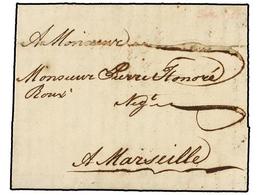 A Monsieur
Monsieur Pierre Honoré
Roux
Negt
A Marseille